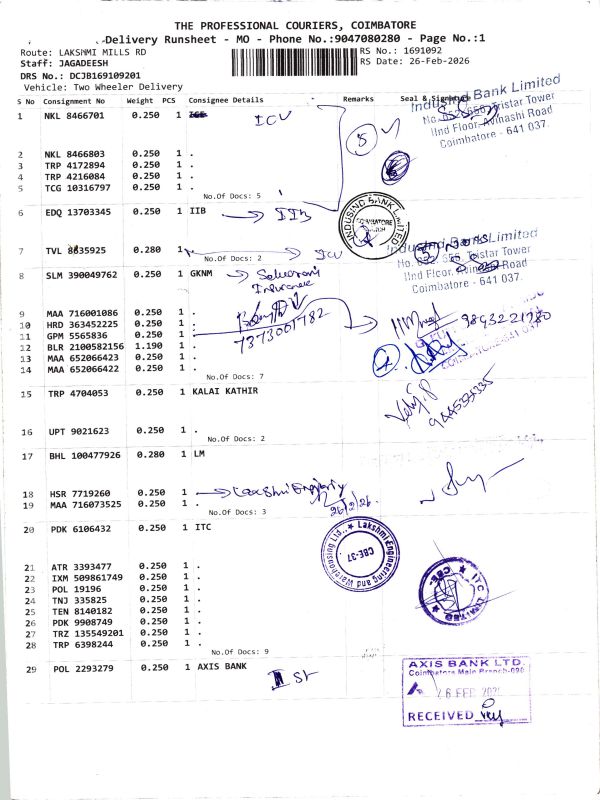 THE PROFESSIONAL COURIERS, COIMBATORE
Delivery Runsheet - MO - Phone No.:9047080280 - Page No.:1
Route: LAKSHMI MILLS RD
RS No.: 1691092
Staff: JAGADEESH
RS Date: 26-Feb-2026
DRS No.: DCJB169109201
Vehicle: Two Wheeler Delivery
S No Consignment No Weight PCS Consignee Details Remarks Seal & Signature
IndusInd Bank Limited
Tristar Tower
IInd Floor, Avinashi Road
Coimbatore - 641 037.
1 NKL 8466701 0.250 1 ICU
5
2 NKL 8466803 0.250 1 .
3 TRP 4172894 0.250 1 .
4 TRP 4216084 0.250 1 .
5 TCG 10316797 0.250 1 .
No.Of Docs: 5
6 EDQ 13703345 0.250 1 IIB
INDUSIND BANK LIMITED
COIMBATORE
7 TVL 8635925 0.280 1 ICU
No.Of Docs: 2
IndusInd Bank Limited
No. 652-655, Tristar Tower
IInd Floor, Avinashi Road
Coimbatore - 641 037.
8 SLM 390049762 0.250 1 GKNM
Insurance
9 MAA 716001086 0.250 1 .
10 HRD 363452225 0.250 1 .
11 GPM 5565836 0.250 1 .
7373001782
12 BLR 2100582156 1.190 1 .
13 MAA 652066423 0.250 1 .
14 MAA 652066422 0.250 1 .
No.Of Docs: 7
15 TRP 4704053 0.250 1 KALAI KATHIR
16 UPT 9021623 0.250 1 .
No.Of Docs: 2
17 BHL 100477926 0.280 1 LM
18 HSR 7719260 0.250 1
19 MAA 716073525 0.250 1 .
26/2/26.
No.Of Docs: 3
20 PDK 6106432 0.250 1 ITC
Lakshmi Engineering and Warehousing Ltd.,
CBE-37.
21 ATR 3393477 0.250 1 .
22 IXM 509861749 0.250 1 .
23 POL 19196 0.250 1 .
24 TNJ 335825 0.250 1 .
25 TEN 8140182 0.250 1 .
26 PDK 9908749 0.250 1 .
27 TRZ 135549201 0.250 1 .
28 TRP 6398244 0.250 1 .
No.Of Docs: 9
ITC LIMITED
CBE
29 POL 2293279 0.250 1 AXIS BANK
AXIS BANK LTD.
Coimbatore Main Branch-090
RECEIVED